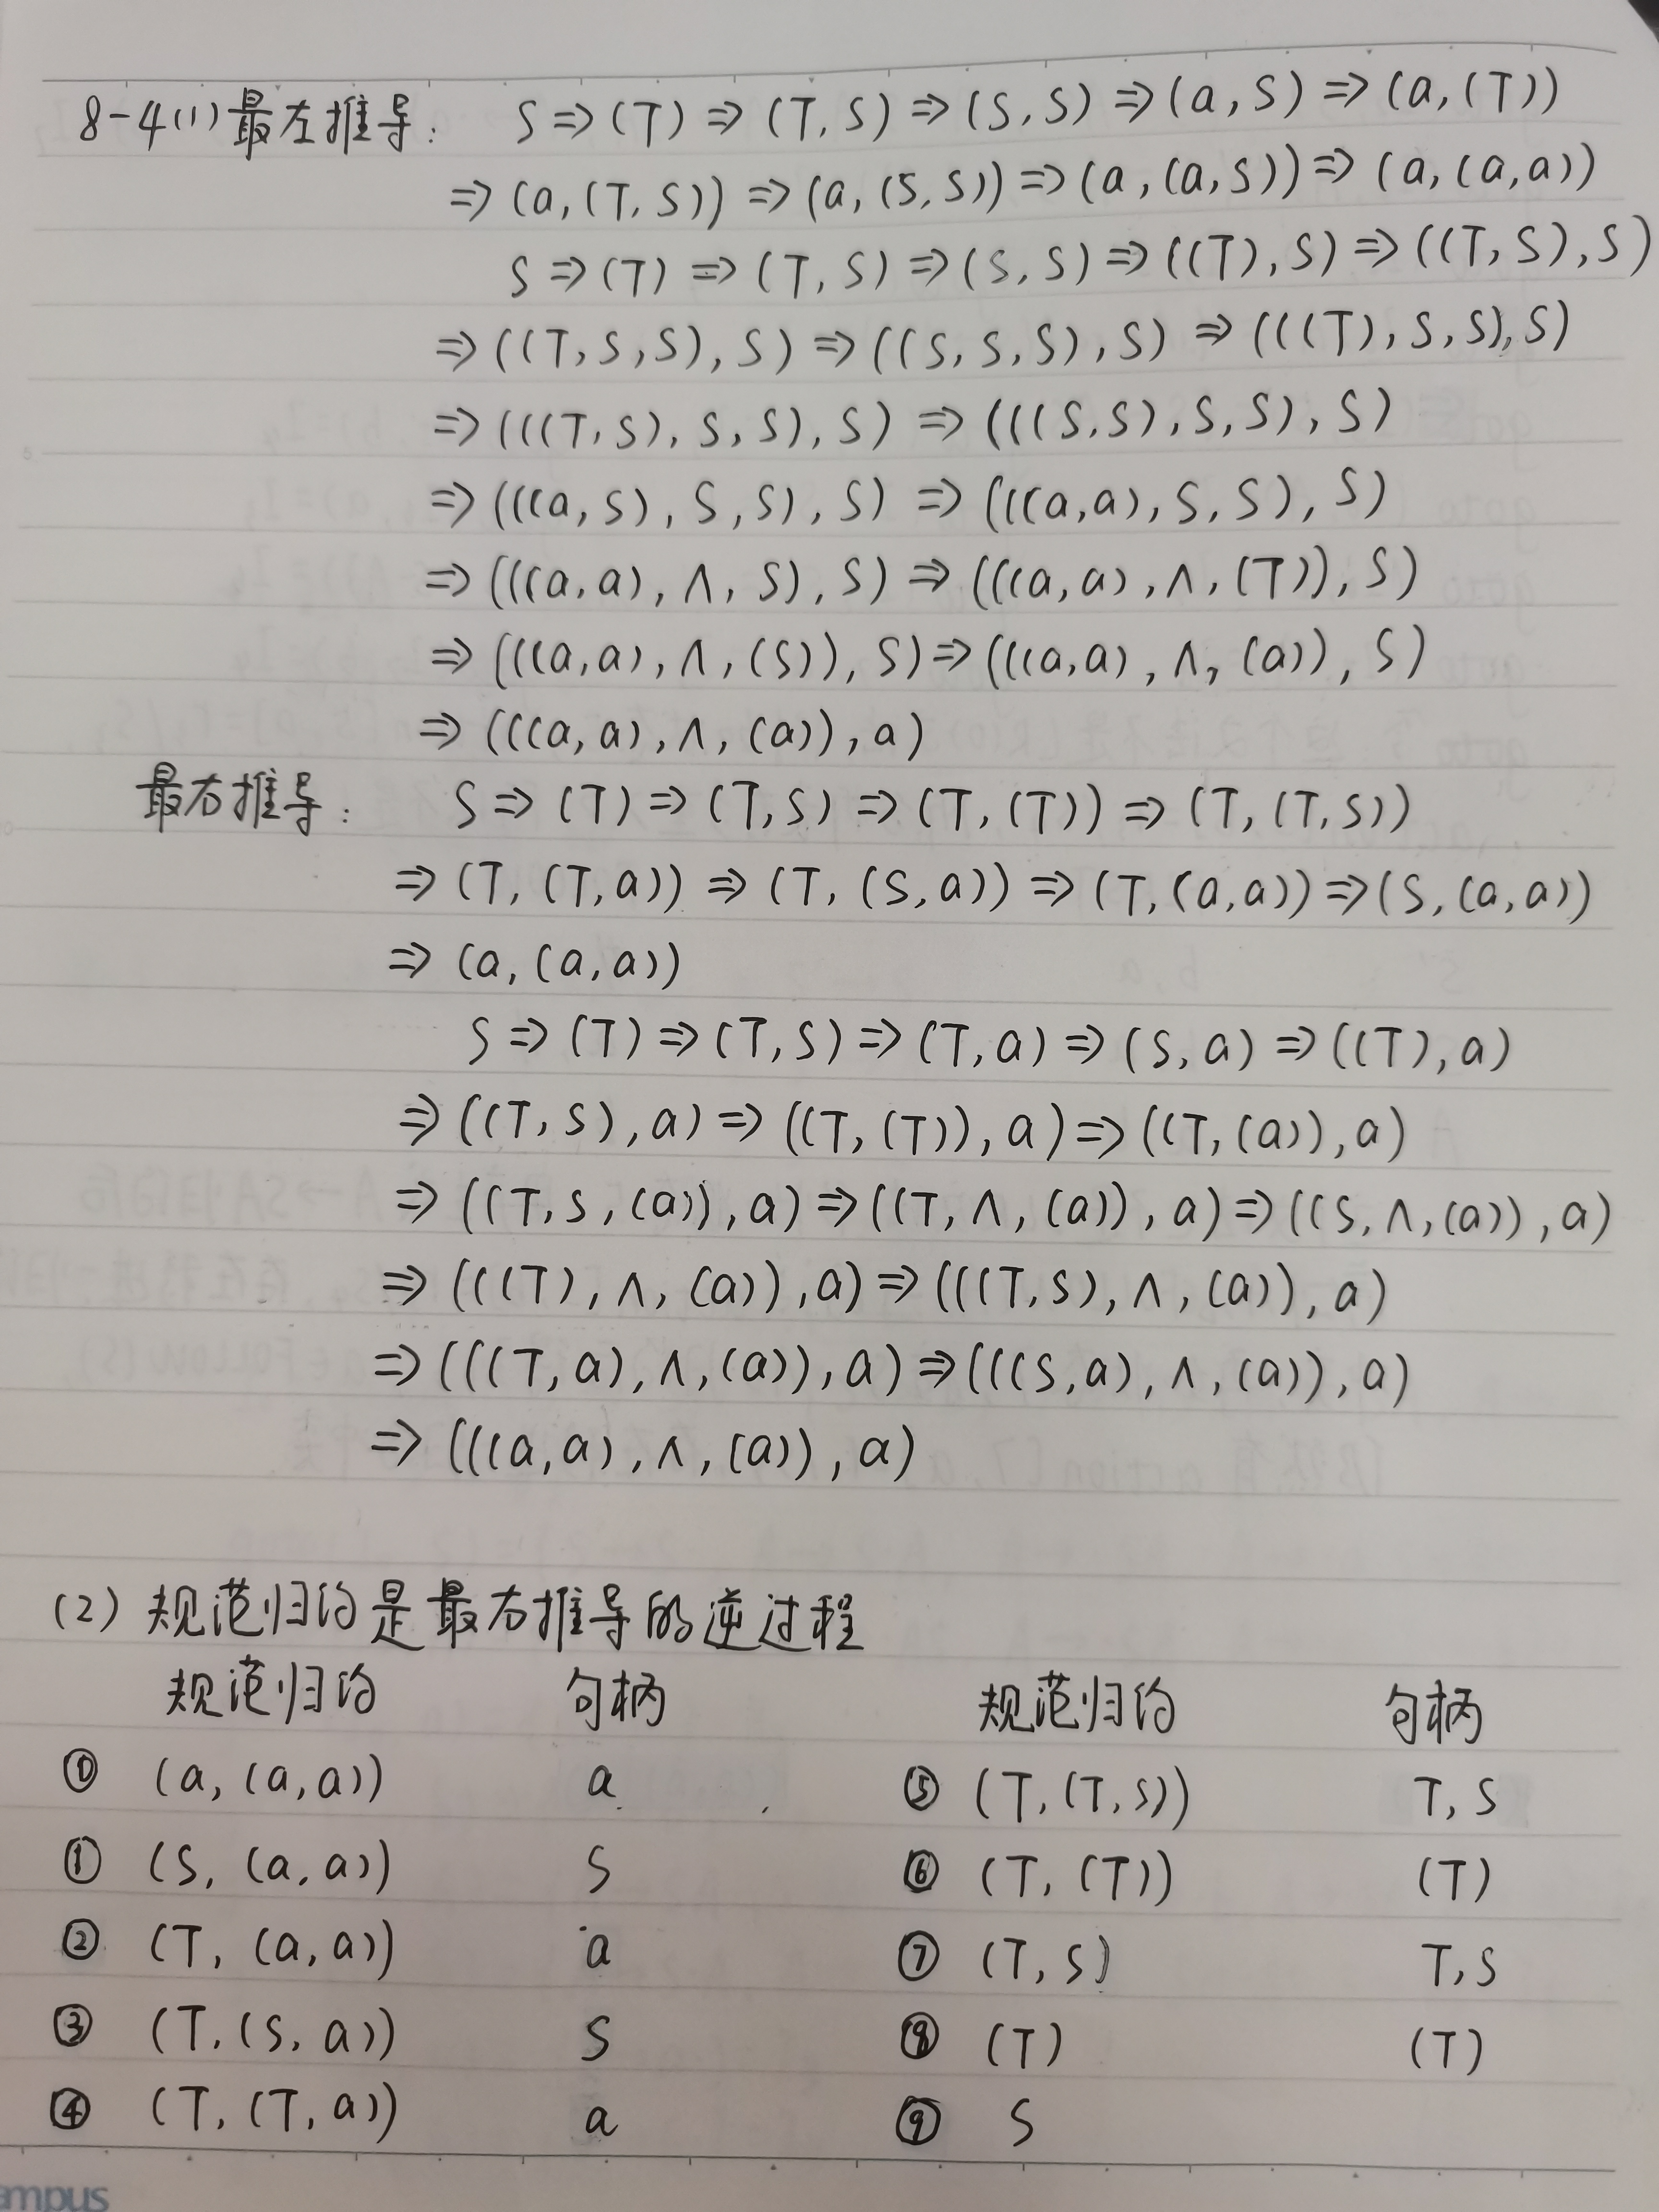 8-4(1) 最左推导: S⇒(T)⇒(T,S)⇒(S,S)⇒(a,S)⇒(a,(T))
⇒(a,(T,S))⇒(a,(S,S))⇒(a,(a,S))⇒(a,(a,a))
S⇒(T)⇒(T,S)⇒(S,S)⇒((T),S)⇒((T,S),S)
⇒((T,S,S),S)⇒((S,S,S),S)⇒(((T),S,S),S)
⇒(((T,S),S,S),S)⇒(((S,S),S,S),S)
⇒(((a,S),S,S),S)⇒(((a,a),S,S),S)
⇒(((a,a),∧,S),S)⇒(((a,a),∧,(T)),S)
⇒(((a,a),∧,(S)),S)⇒(((a,a),∧,(a)),S)
⇒(((a,a),∧,(a)),a)
最右推导: S⇒(T)⇒(T,S)⇒(T,(T))⇒(T,(T,S))
⇒(T,(T,a))⇒(T,(S,a))⇒(T,(a,a))⇒(S,(a,a))
⇒(a,(a,a))
S⇒(T)⇒(T,S)⇒(T,a)⇒(S,a)⇒((T),a)
⇒((T,S),a)⇒((T,(T)),a)⇒((T,(a)),a)
⇒((T,S,(a)),a)⇒((T,∧,(a)),a)⇒((S,∧,(a)),a)
⇒(((T),∧,(a)),a)⇒(((T,S),∧,(a)),a)
⇒(((T,a),∧,(a)),a)⇒(((S,a),∧,(a)),a)
⇒(((a,a),∧,(a)),a)
(2) 规范归约是最右推导的逆过程
规范归约 句柄 规范归约 句柄
⓪ (a,(a,a)) a ⑤ (T,(T,S)) T,S
① (S,(a,a)) S ⑥ (T,(T)) (T)
② (T,(a,a)) a ⑦ (T,S) T,S
③ (T,(S,a)) S ⑧ (T) (T)
④ (T,(T,a)) a ⑨ S